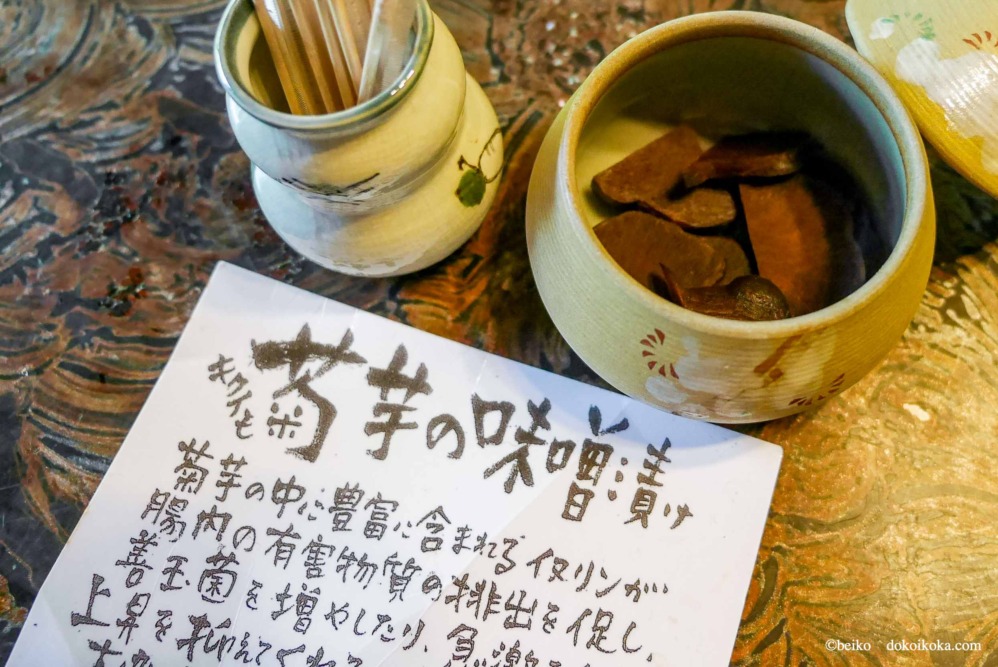 キクイも
菊芋の味噌漬け
菊芋の中に豊富に含まれるイヌリンが
腸内の有害物質の排出を促し、
善玉菌を増やしたり、急激な
上昇を抑えてくれる
©beiko dokoikoka.com